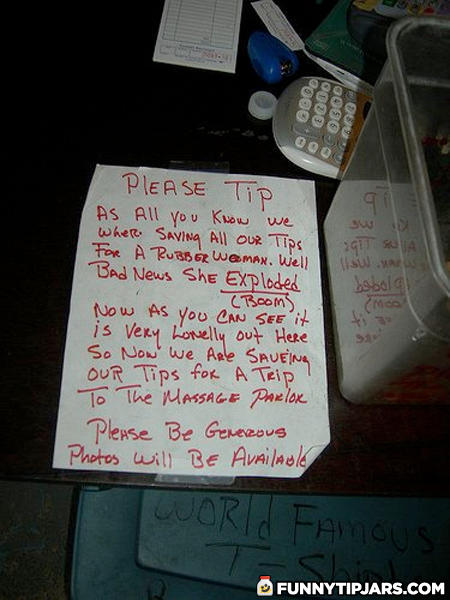 PLEASE TIP
AS All you KNOW WE
WHER SAVING All OUR TIPS
FOR A RUBBER WOMAN. Well
BAD NEWS SHE EXPloded
(BOOM)
NOW AS you CAN SEE it
is VERY LONElly OUT HERE
SO NOW WE ARE SAVEING
OUR TIPS FOR A TRIP
TO THE MASSAGE PARlOR
PlEASE BE GENEROUS
PHOTOS Will BE AVAILABlE
WORLD FAMOUS
T-Shirt
FUNNYTIPJARS.COM